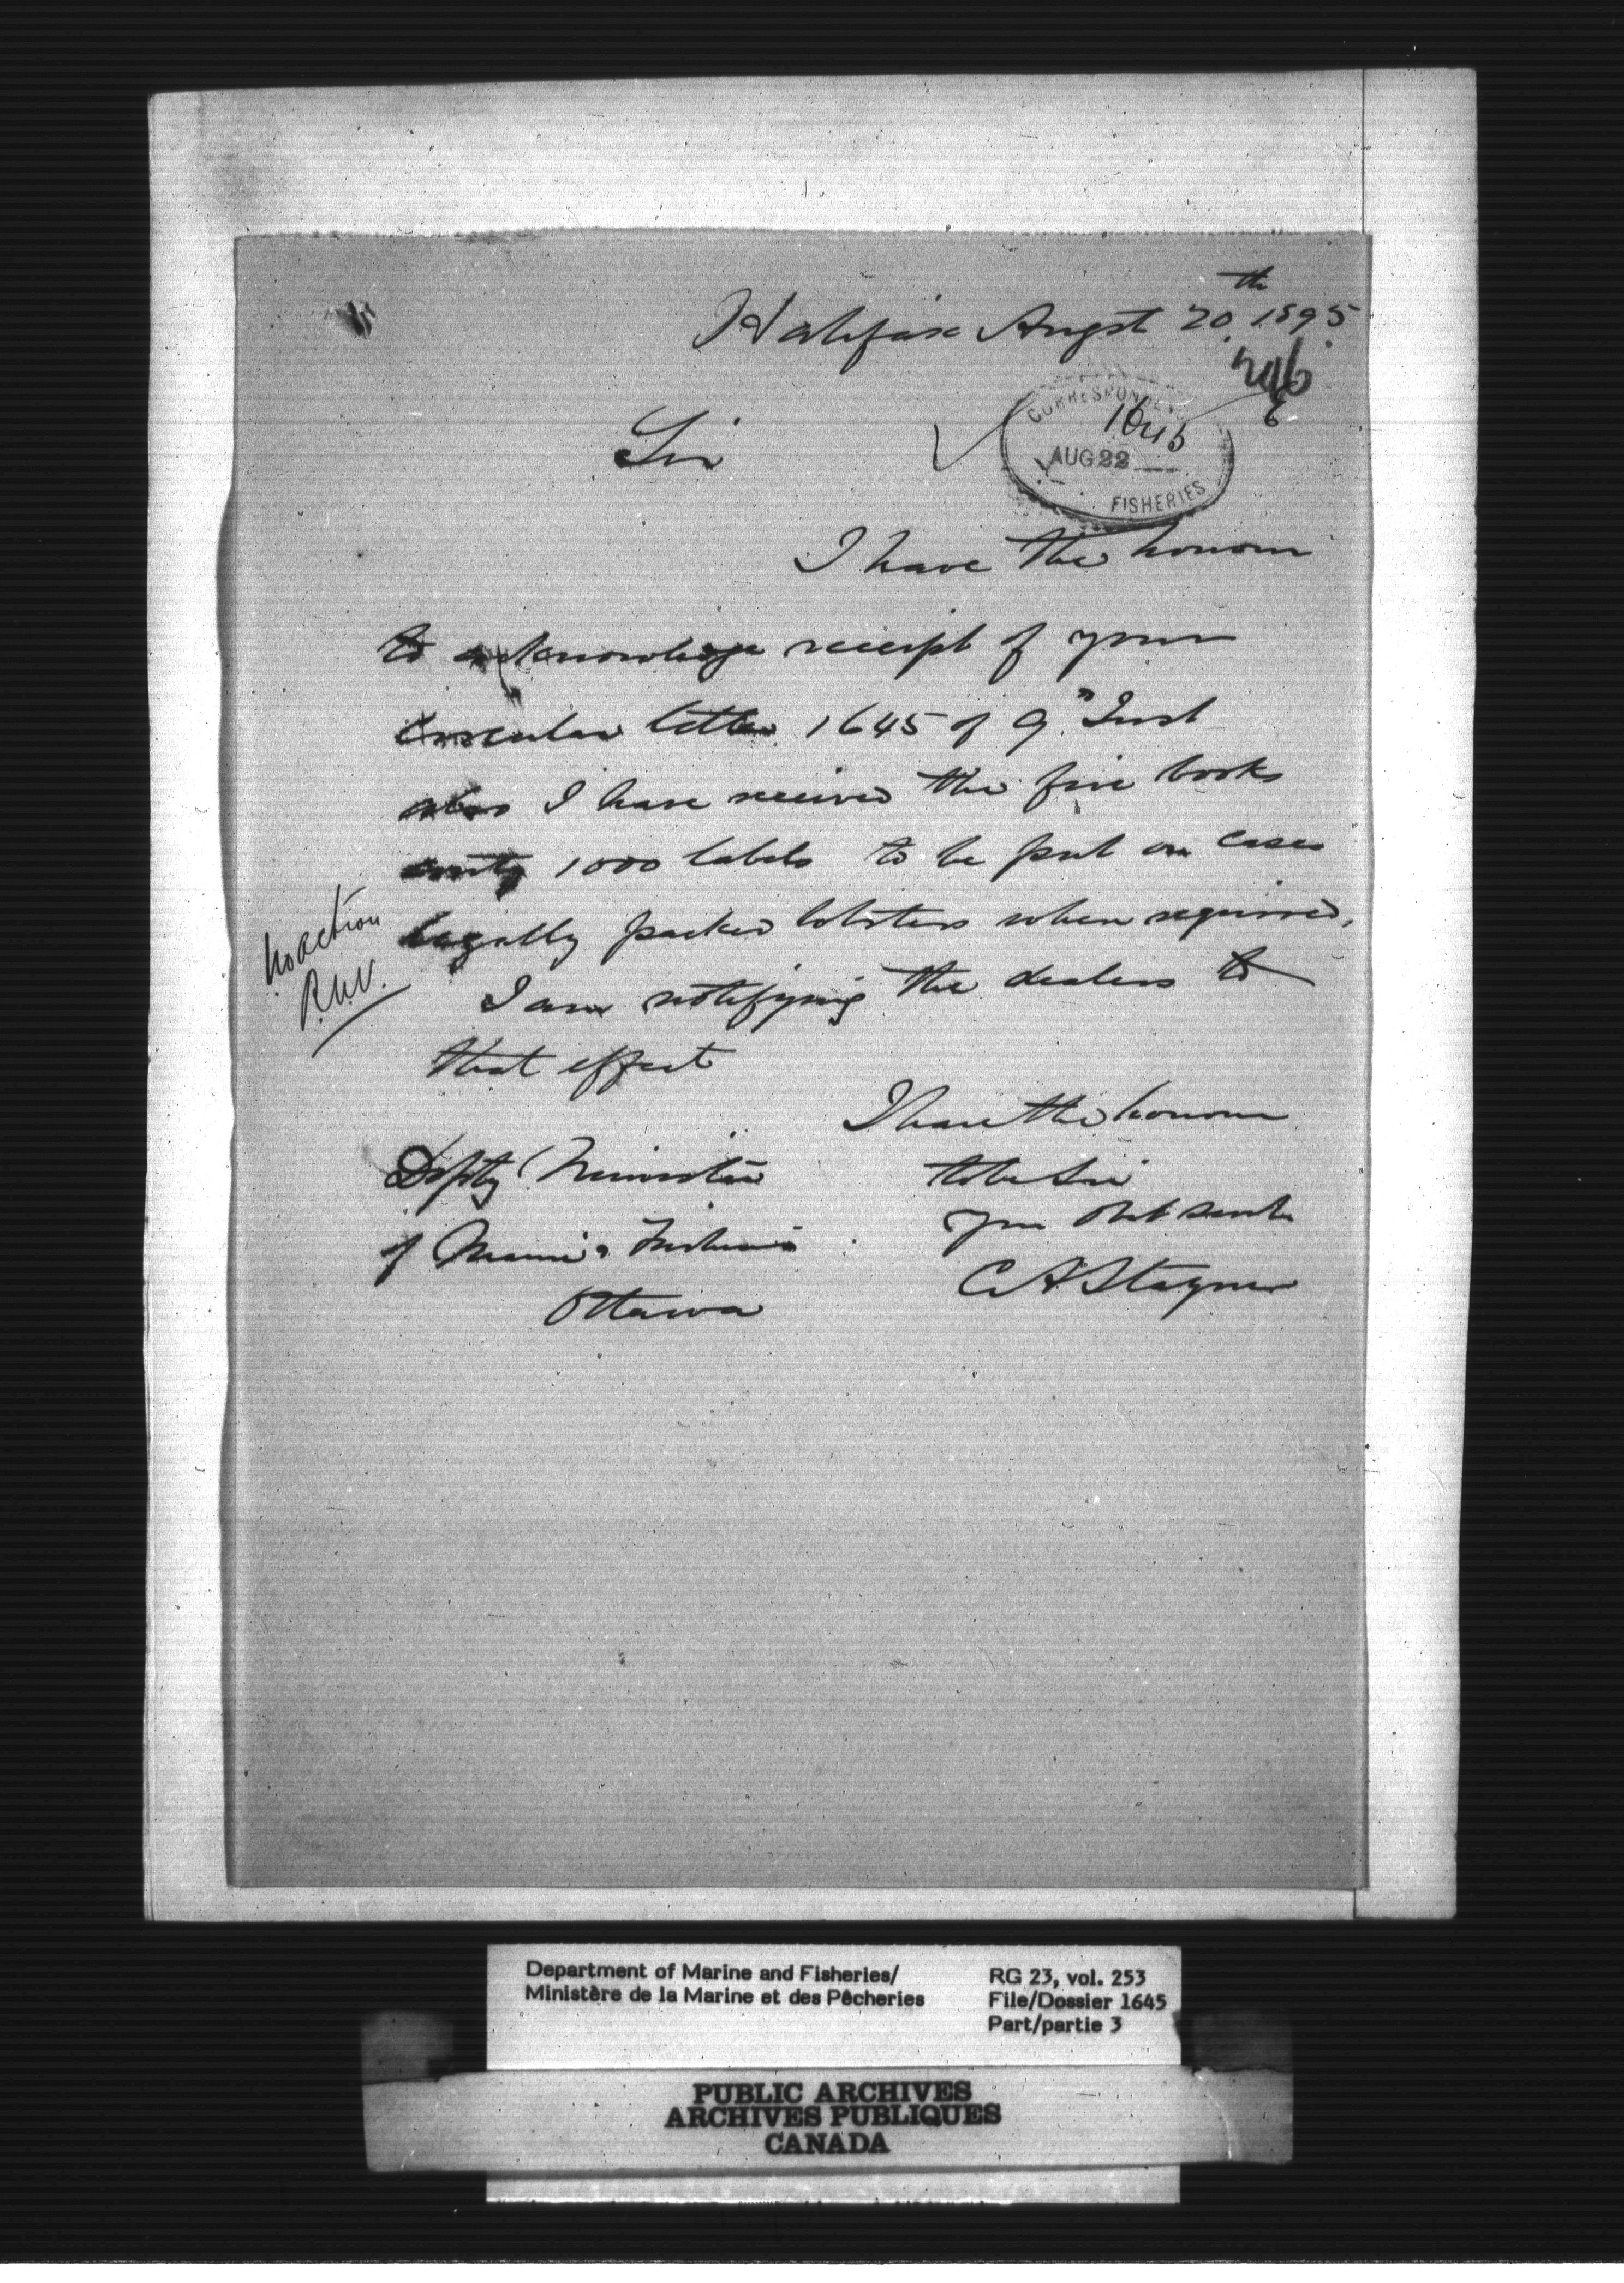 Halifax Augst 20th 1895
246
6
CORRESPONDENCE
1645
AUG 22
FISHERIES
Sir
I have the honour
to acknowledge receipt of your
Circular letter 1645 of 9" Inst
also I have received the five books
1000 labels to be put on cases
legally packed lobsters when required,
I am notifying the dealers to
that effect
No action
I have the honour
to be Sir
your Obt Servt
C A Stayner
Depty Minister
of Marine & Fisheries
Ottawa
Department of Marine and Fisheries/
Ministère de la Marine et des Pêcheries
RG 23, vol. 253
File/Dossier 1645
Part/partie 3
PUBLIC ARCHIVES
ARCHIVES PUBLIQUES
CANADA